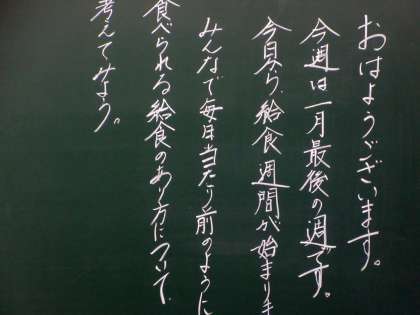 おはようございます。
今週は一月最後の週です。
今日から、給食週間が始まりま
みんなで毎日当たり前のように
食べられる給食のあり方について、
考えてみよう。